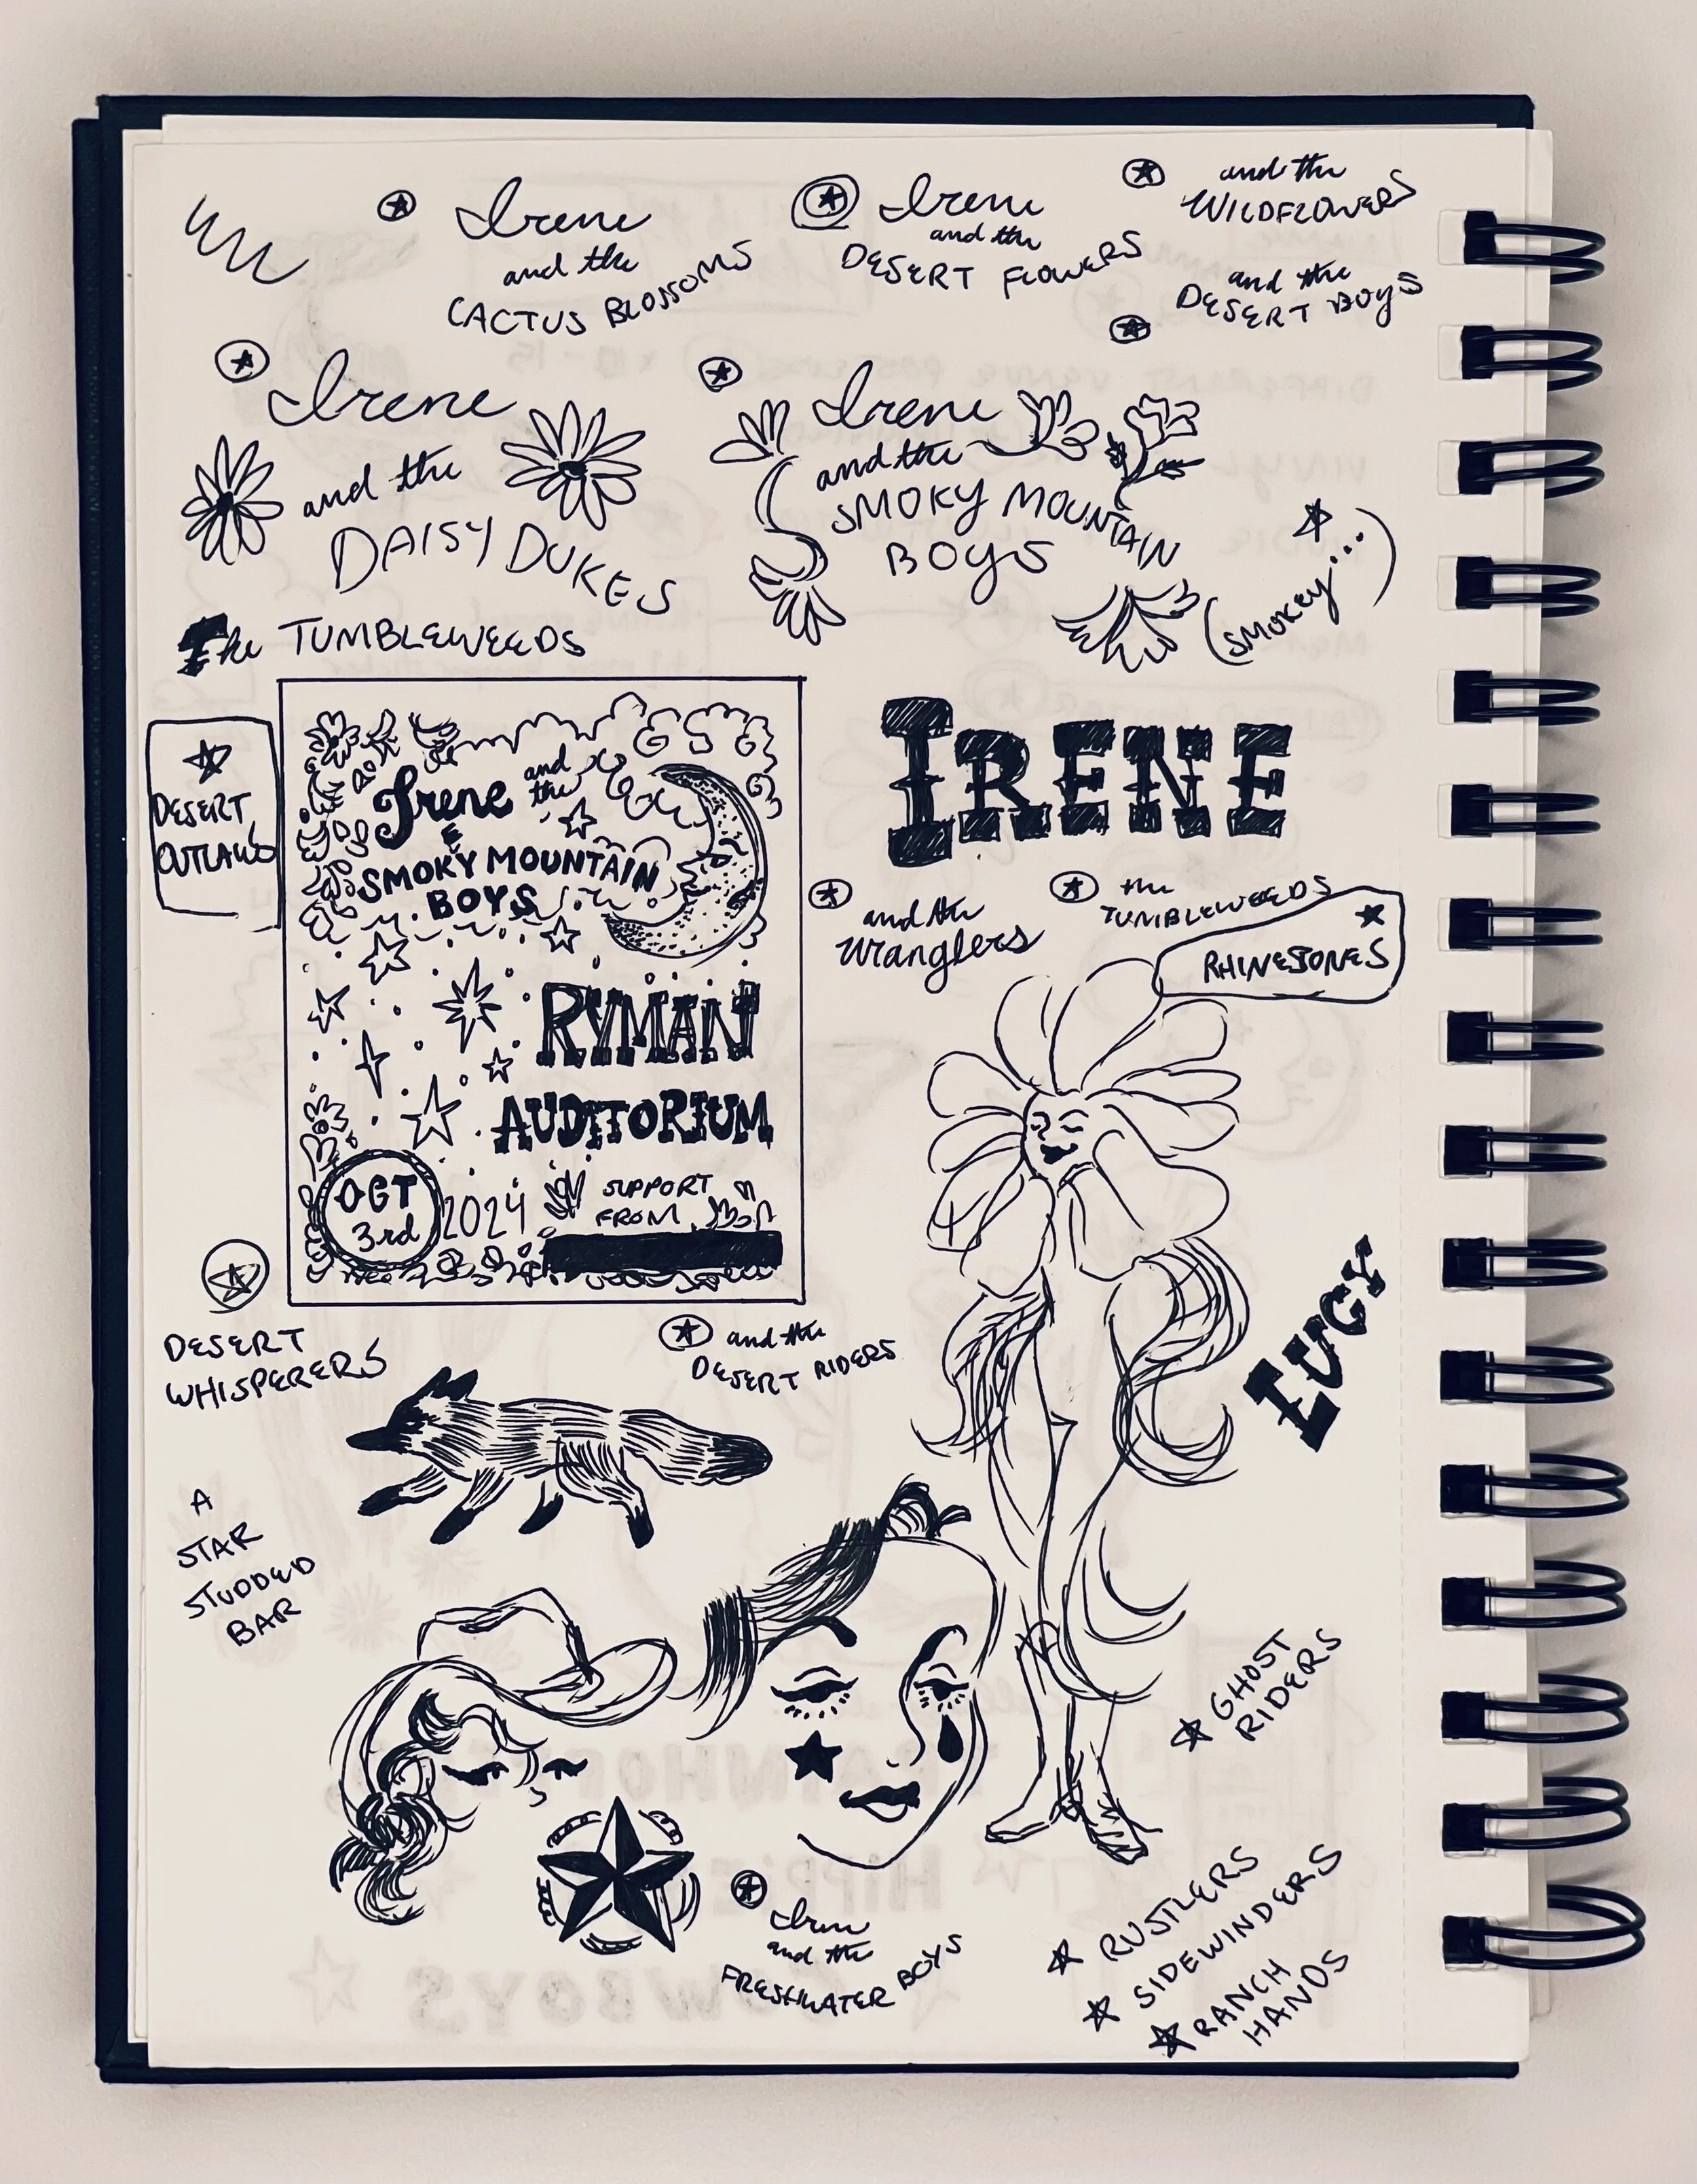 Irene
and the
CACTUS BLOSSOMS
Irene
and the
DESERT FLOWERS
and the
WILDFLOWERS
and the
DESERT BOYS
Irene
and the
DAISY DUKES
Irene
and the
SMOKY MOUNTAIN
BOYS
(SMOKEY...)
The TUMBLEWEEDS
DESERT
OUTLAWS
Irene and
the
&
SMOKY MOUNTAIN
BOYS
RYMAN
AUDITORIUM
OCT
3rd
2024
SUPPORT
FROM
IRENE
and the
Wranglers
the
TUMBLEWEEDS
RHINESTONES
DESERT
WHISPERERS
and the
DESERT RIDERS
A
STAR
STUDDED
BAR
GHOST
RIDERS
Irene
and the
FRESHWATER BOYS
RUSTLERS
SIDEWINDERS
RANCH
HANDS